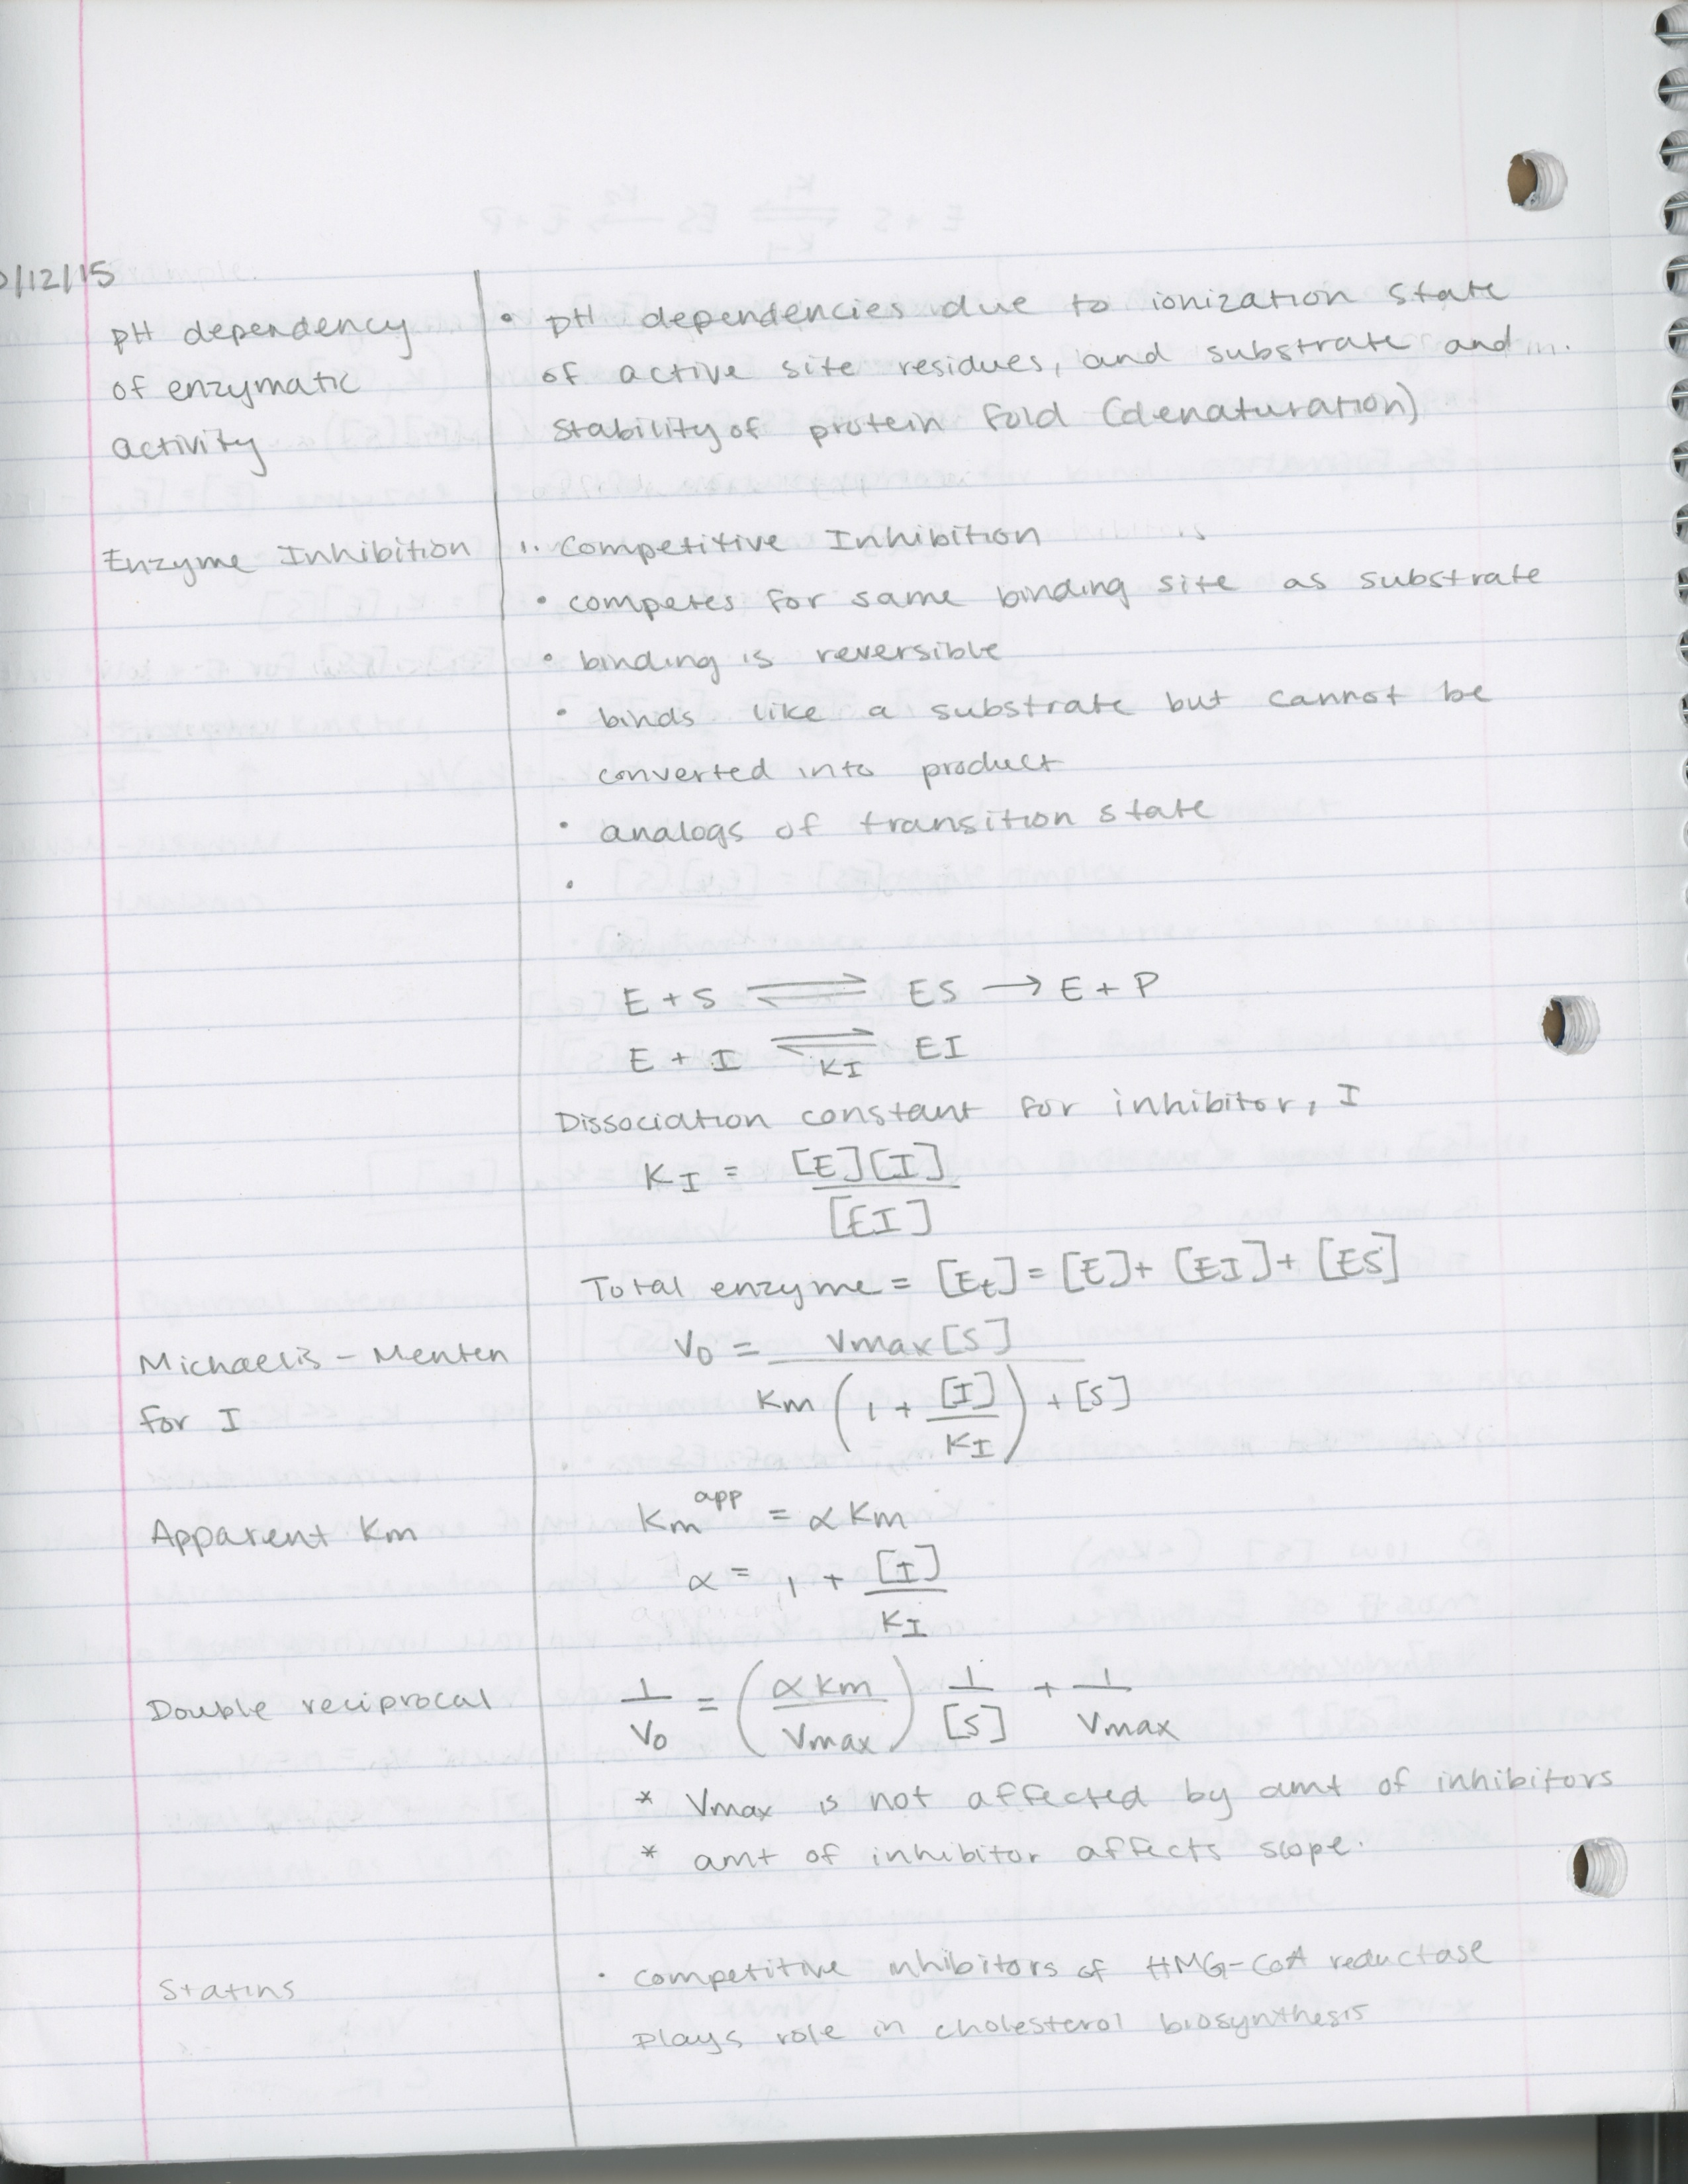 0/12/15
pH dependency
of enzymatic
activity
• pH dependencies due to ionization state
of active site residues, and substrate and
stability of protein fold (denaturation)
Enzyme Inhibition
1. Competitive Inhibition
• competes for same binding site as substrate
• binding is reversible
• binds like a substrate but cannot be
converted into product
• analogs of transition state
•
E + S ⇌ ES → E + P
E + I ⇌ EI
KI
Dissociation constant for inhibitor, I
KI = [E][I]
[EI]
Total enzyme = [Et] = [E] + [EI] + [ES]
Michaelis-Menten
for I
V0 = Vmax[S]
Km (1 + [I]/KI) + [S]
Apparent Km
Km^app = αKm
α = 1 + [I]
KI
Double reciprocal
1/V0 = (αKm/Vmax) 1/[S] + 1/Vmax
* Vmax is not affected by amt of inhibitors
* amt of inhibitor affects slope.
Statins
• competitive inhibitors of HMG-CoA reductase
plays role in cholesterol biosynthesis